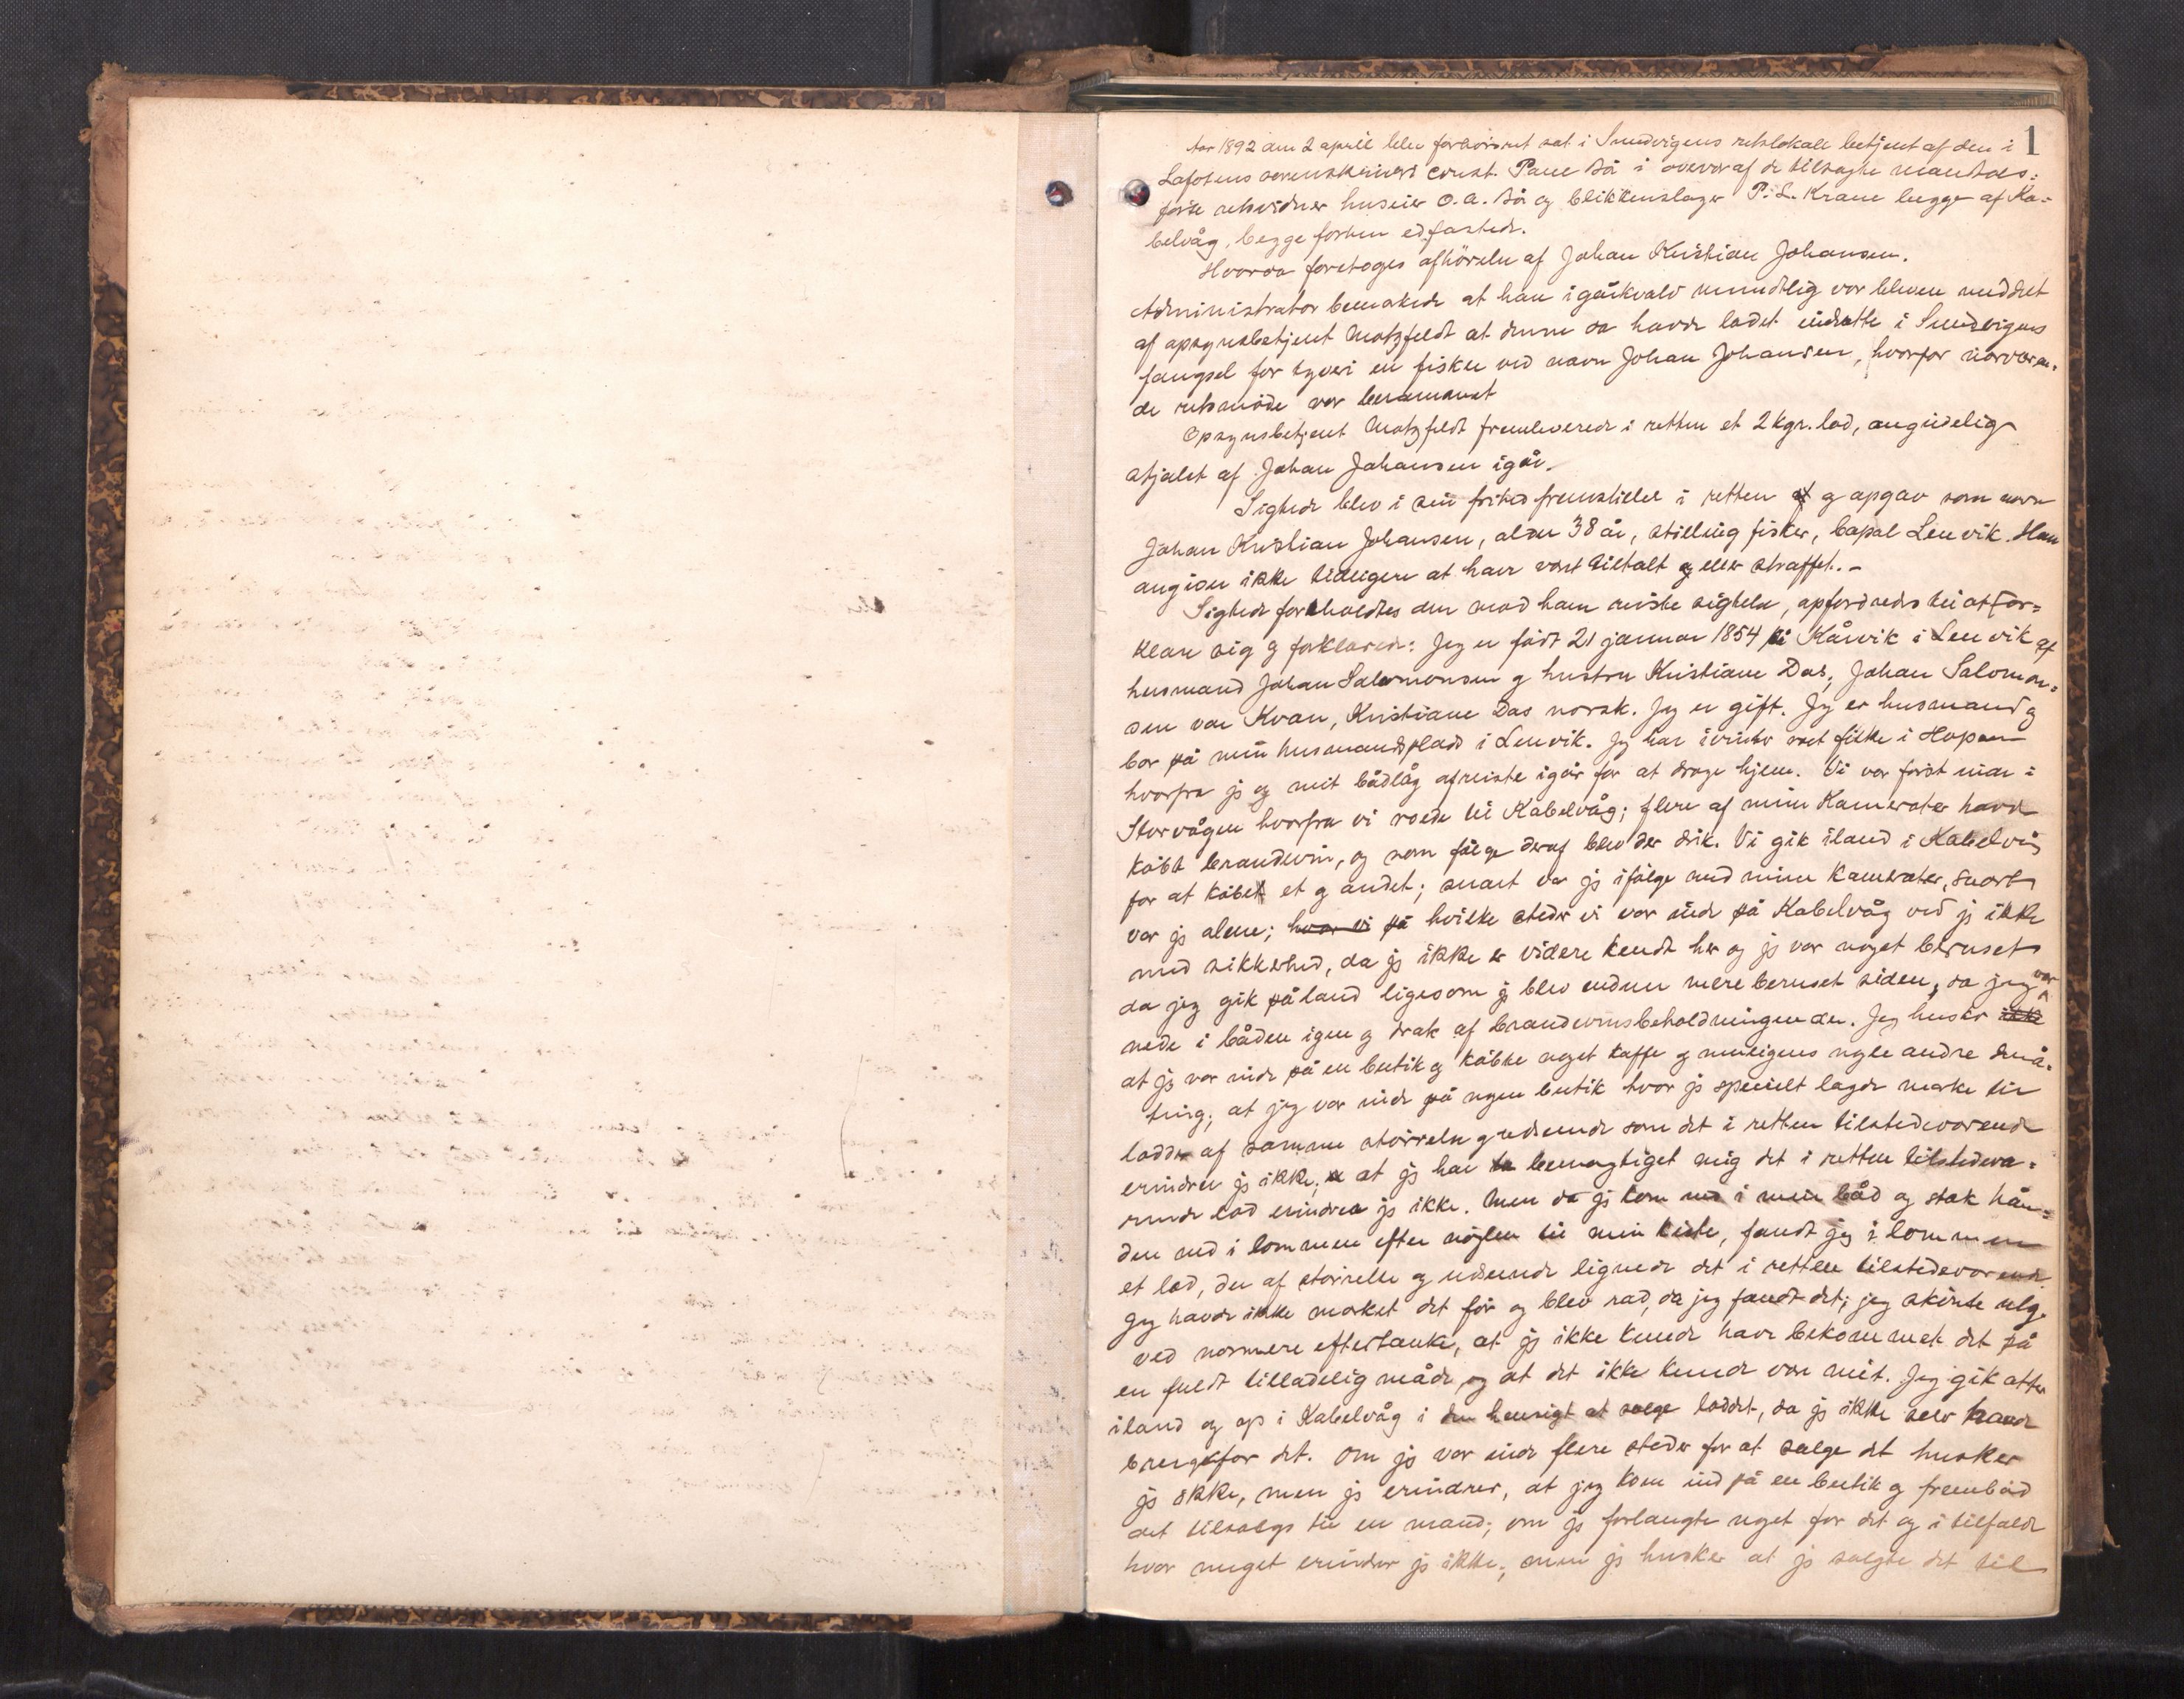 1
Aar 1892 den 2 april blev forhörsret sat i Svendvigens retslokale betjent af den i
Lofotens sorenskriveri const. Paue Så i overvær af de tilsagte mandtals-
förte retsvidner huseier O. A. Så og blikkenslager P. L. Krane begge af Ka-
belvåg, begge forhen edfæstede.
Hvorda foretoges afhörelse af Johan Kristian Johansen.
Administrator bemærkede at han igårkvæld mundtlig var bleven meddelt
af opsynsbetjent Motzfeldt at denne da havde ladet indsætte i Svendvigens
fængsel for tyveri en fisker ved navn Johan Johansen, hvorfor nærværen-
de retsmöde var berammet
Opsynsbetjent Motzfeldt fremleverede i retten et 2 kgr. lod, angivelig
stjålet af Johan Johansen igår.
Sigtede blev i sin frihed fremstillet i retten og opgav som navn
Johan Kristian Johansen, alder 38 år, stilling fisker, bopæl Lenvik. Han
angiver ikke tidligere at have vært tiltalt eller straffet. -
Sigtede foreholdtes den mod ham reiste sigtelse, opfordredes til at for-
klare sig og forklarede: Jeg er födt 21 januar 1854 på Kårvik i Lenvik af
husmand Johan Salomonsen og hustru Kristiane Das; Johan Salomon-
sen var Kvæn, Kristiane Das norsk. Jeg er gift. Jeg er husmand og
bor på min husmandsplads i Lenvik. Jeg har ivinter rott fiske i Hopen
hvorfra jeg og mit bådlag afreiste igår for at drage hjem. Vi var först inde i
Storvågen hvorfra vi roede til Kabelvåg; flere af mine kamerater havde
köbt brændevin, og som fölge deraf blev der drik. Vi gik iland i Kabelvåg
for at köbe et og andet; snart var jeg ifölge med mine kamerater, snart
var jeg alene; hvor vi på hvilke steder vi var inde på Kabelvåg ved jeg ikke
med sikkerhed, da jeg ikke er videre kendt her og jeg var noget beruset
da jeg gik på land ligesom jeg blev endnu mere beruset siden, da jeg var
nede i båden igen og drak af brændevinsbeholdningen der. Jeg husker ikke
at jeg var inde på en butik og köbte noget kaffe og muligens nogle andre små-
ting; at jeg var inde på nogen butik hvor jeg specielt lagde mærke til
lodder af samme störrelse og udseende som det i retten tilstedeværende
erindrer jeg ikke; at jeg har bemægtiget mig det i retten tilstedevæ-
rende lod erindrer jeg ikke. Men da jeg kom ned i min båd og stak hån-
den ned i lommen efter nöglen til min kiste, fandt jeg i lommen
et lod, der af störrelse og udseende lignede det i retten tilstedeværende.
Jeg havde ikke mærket det för og blev ræd, da jeg fandt det; jeg skönte nlg.
ved nærmere eftertanke, at jeg ikke kunde have bekommet det på
en fuldt tilladelig måde, og at det ikke kunde være mit. Jeg gik atter
iland og op i Kabelvåg i den hensigt at sælge loddet, da jeg ikke selv havde
brug for det. Om jeg var inde flere steder for at sælge det husker
jeg ikke, men jeg erindrer, at jeg kom ind på en butik og fremböd
det tilsalgs til en mand; om jeg forlangte noget for det og i tilfælde
hvor meget erindrer jeg ikke, men jeg husker at jeg solgte det til